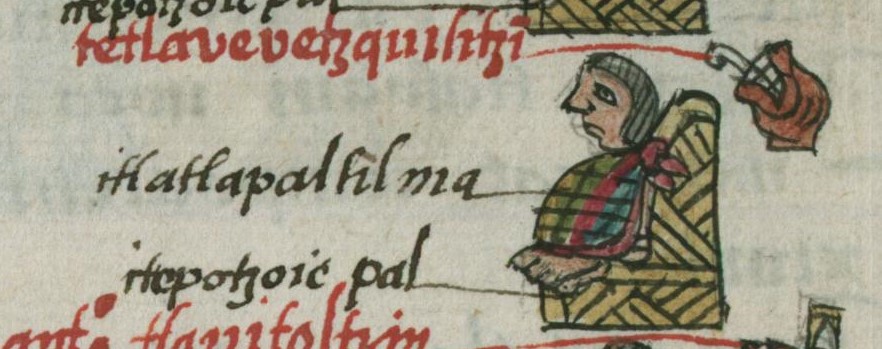 itepotzoic pal
tetlavevetzquilitzi
itlatlapaltilma
itepotzoic pal
ant.º tlauitoltzin